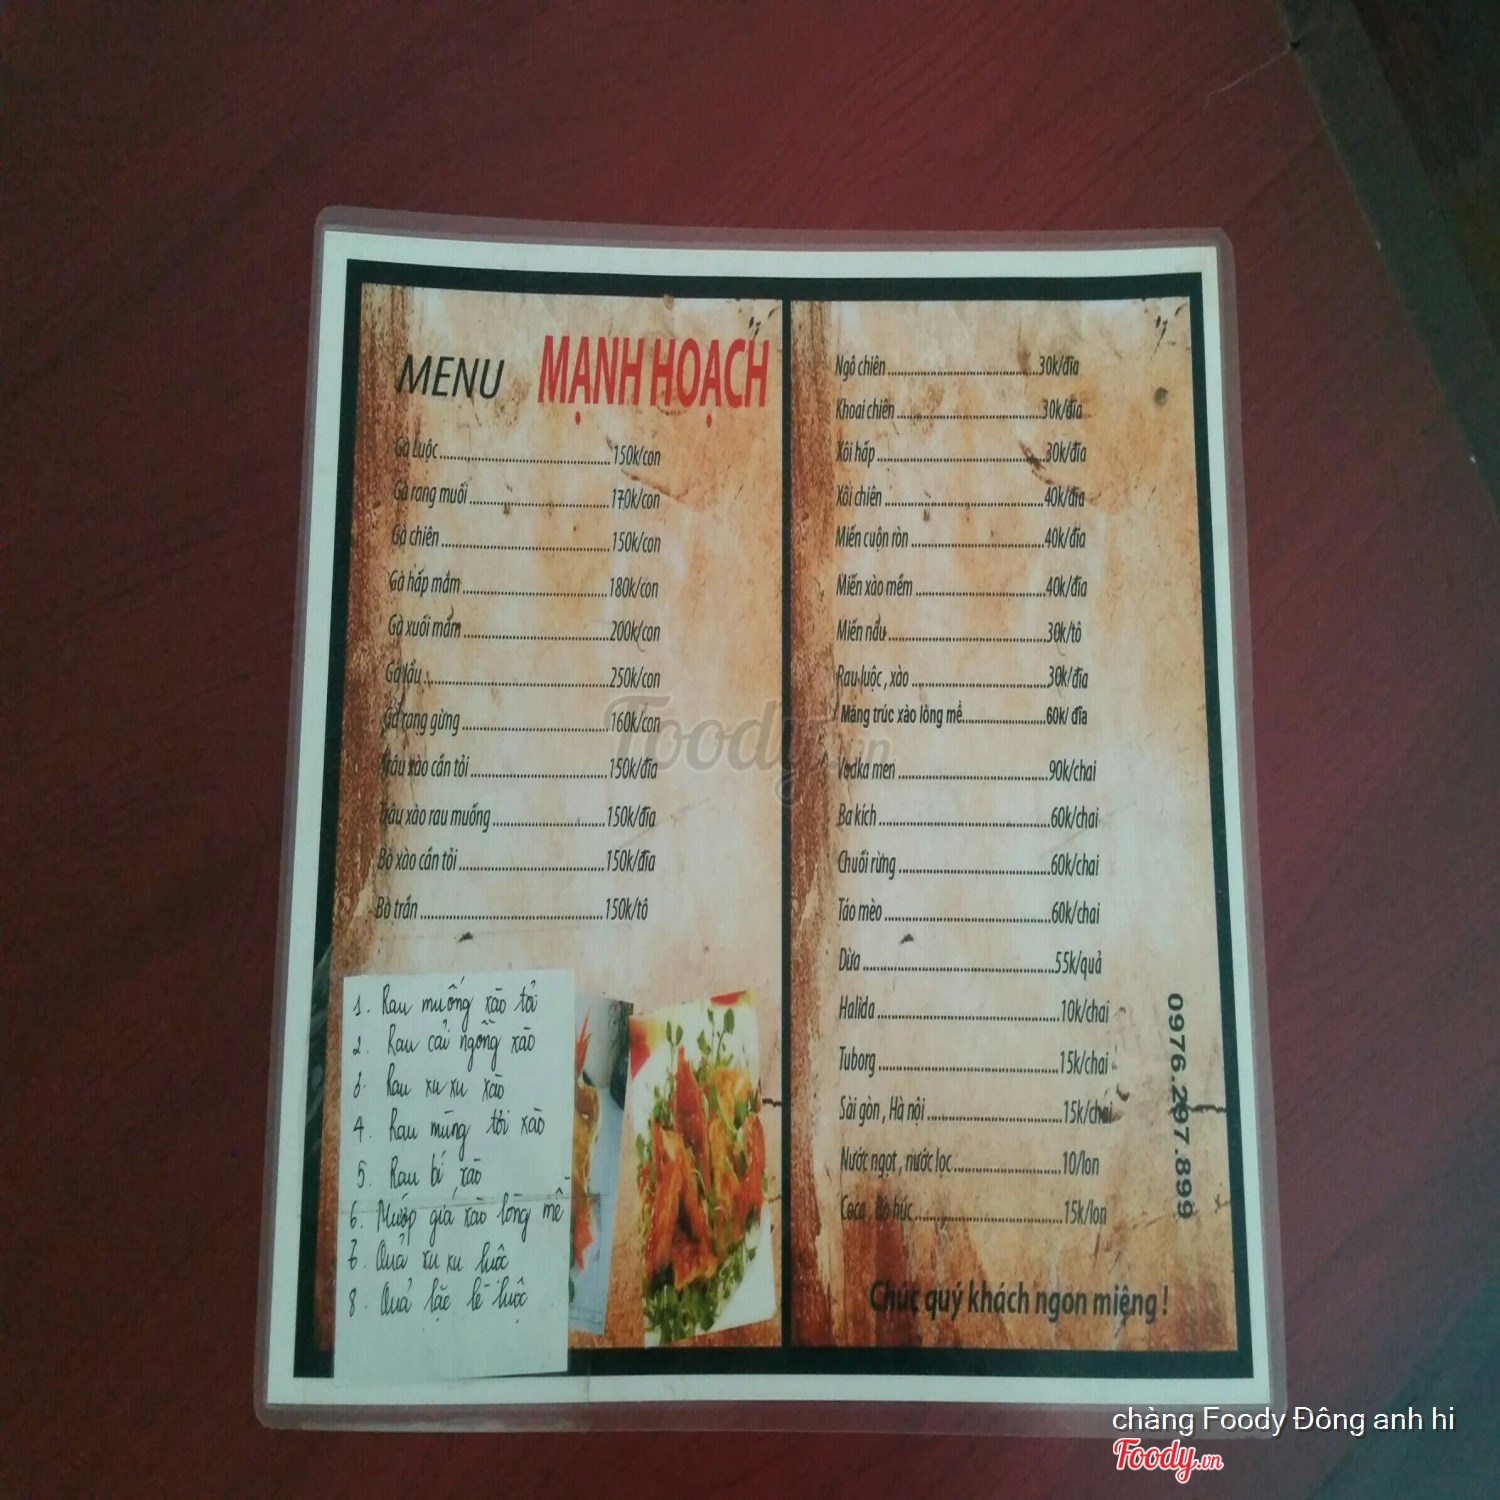 MENU MẠNH HOẠCH
Gà Luộc 150k/con
Gà rang muối 170k/con
Gà chiên 150k/con
Gà hấp mắm 180k/con
Gà xuối mắm 200k/con
Gà lẩu 250k/con
Gà rang gừng 160k/con
Trâu xào cần tỏi 150k/đĩa
Trâu xào rau muống 150k/đĩa
Bò xào cần tỏi 150k/đĩa
Bò trần 150k/tô
1. Rau muống xào tỏi
2. Rau cải ngồng xào
3. Rau xu xu xào
4. Rau mùng tơi xào
5. Rau bí xào
6. Mướp giá xào lòng mề
7. Quả xu xu luộc
8. Quả lặc lè luộc
Ngô chiên 30k/đĩa
Khoai chiên 30k/đĩa
Xôi hấp 30k/đĩa
Xôi chiên 40k/đĩa
Miến cuộn ròn 40k/đĩa
Miến xào mềm 40k/đĩa
Miến nấu 30k/tô
Rau luộc , xào 30k/đĩa
Măng trúc xào lòng mề 60k/ đĩa
Vodka men 90k/chai
Ba kích 60k/chai
Chuối rừng 60k/chai
Táo mèo 60k/chai
Dừa 55k/quả
Halida 10k/chai
Tuborg 15k/chai
Sài gòn , Hà nội 15k/chai
Nước ngọt , nước lọc 10/lon
Coca , Bò húc 15k/lon
Chúc quý khách ngon miệng !
0976.297.899
Foody.vn
chàng Foody Đông anh hi
Foody.vn